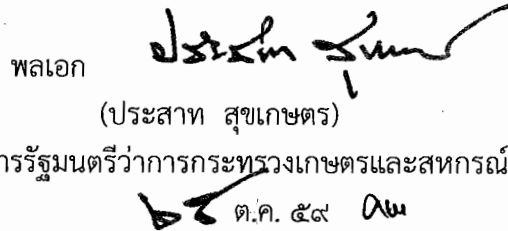 พลเอก ประสาท สุข
(ประสาท สุขเกษตร)
การรัฐมนตรีว่าการกระทรวงเกษตรและสหกรณ์
ต.ค. ๕๙